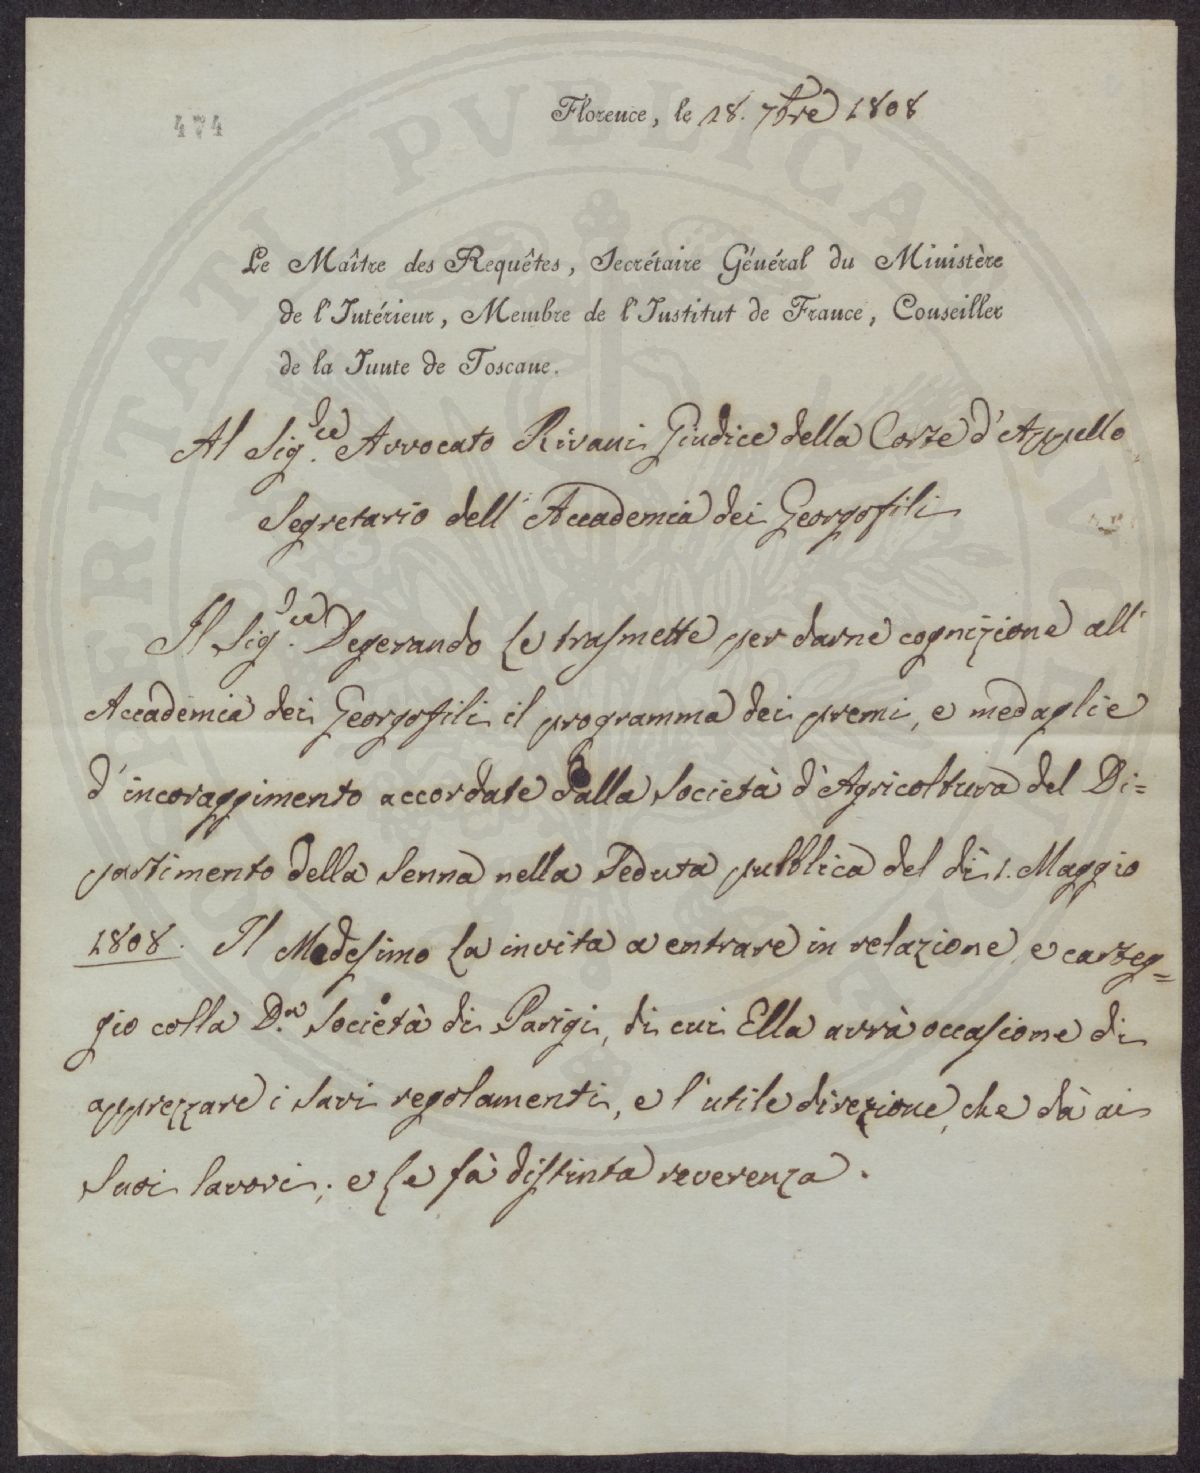 474
Florence, le 28. 7bre 1808
Le Maître des Requêtes, Secrétaire Général du Ministère
de l'Intérieur, Membre de l'Institut de France, Conseiller
de la Junte de Toscane.
Al Sig.re Avvocato Rivani Giudice della Corte d'Appello
Segretario dell'Accademia dei Georgofili
Il Sig.re Degerando Le trasmette per darne cognizione all'
Accademia dei Georgofili il programma dei premi, e medaglie
d'incoraggimento accordate dalla Società d'Agricoltura del Di=
partimento della Senna nella Seduta pubblica del dì 1. Maggio
1808. Il Medesimo La invita a entrare in relazione, e carteg=
gio colla D.a Società di Parigi, di cui Ella avrà occasione di
apprezzare i savi regolamenti, e l'utile direzione, che dà ai
suoi lavori; e Le fà distinta reverenza.